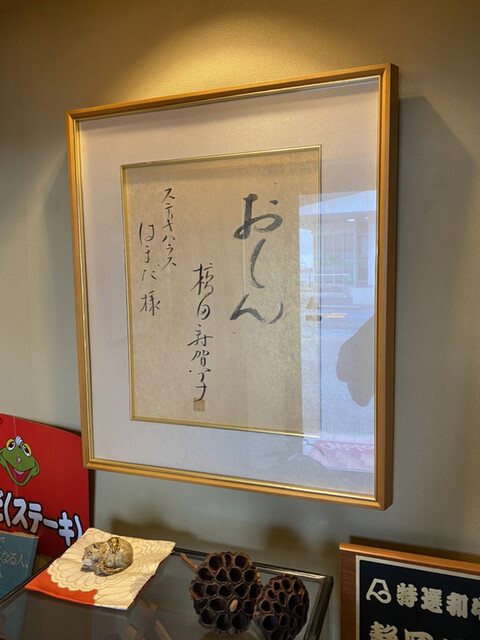 おしん
橋田寿賀子
ステーキハウス
はまだ様
(ステーキ)
なる人、
特選和